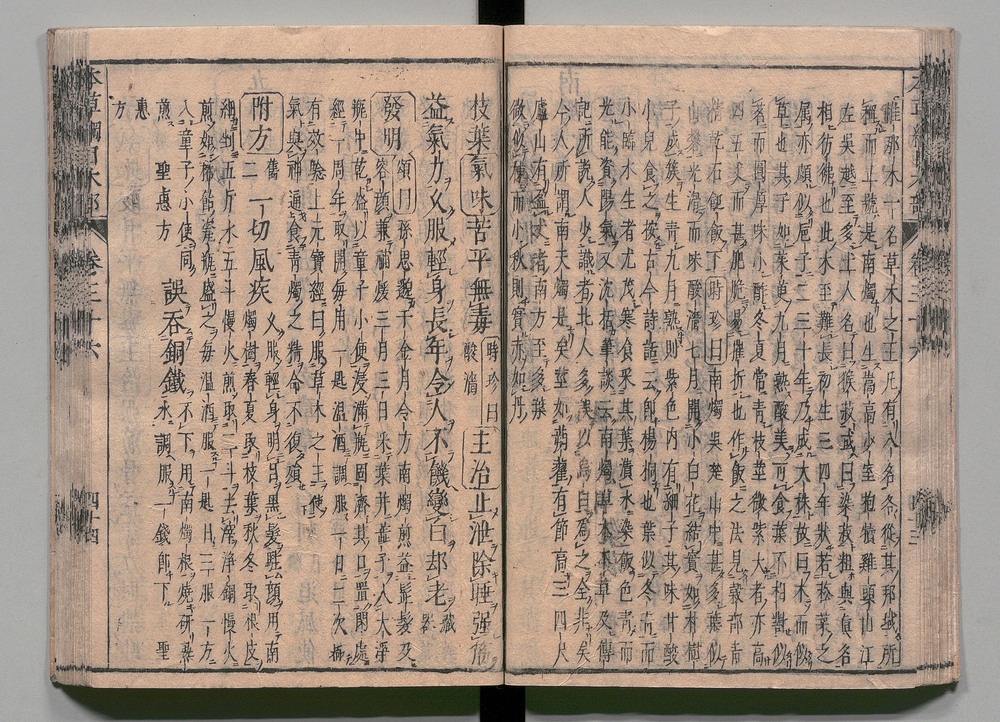 離那木十名草木之王凡有八名各從其邦域所
稱而正號是南燭也生嵩高少室抱犢雞頭山江
左吳越至多土人名曰猴菽或曰染菽粗與眞名
相彷彿也此木至難長初生三四年狀若菘菜之
屬亦頗似巵子二三十年乃成大株故曰木而似
草也其子如茱萸九月熟酸美可食葉不相對似
茗而圓厚味小酢冬夏常青枝莖微紫大者亦高
四五丈而甚肥脆易摧折也作飯之法見穀部青
精乾石𩛆飯下時珍曰南燭吳楚山中甚多葉似
山礬光滑而味酸濇七月開小白花結實如朴樹
子成簇生青九月熟則紫色內有細子其味甘酸
小兒食之按古今詩話云即楊桐也葉似冬青而
小臨水生者尤茂寒食采其葉漬水染飯色青而
光能資陽氣又沈括筆談云南燭草木本草及傳
記所說人少識者北人多誤以烏臼爲之全非矣
今人所謂南天燭是矣莖如蒴藋有節高三四尺
廬山有盈丈者南方至多葉
微似楝而小秋則實赤如丹
枝葉氣味苦平無毒時珍曰酸濇主治止泄除睡强筋
益氣力久服輕身長年令人不饑變白却老藏器
發明頌曰孫思邈千金月令方南燭煎益髭髮及
容顏兼補煖三月三日采葉并蕋子入大淨
甁中乾盛以童子小便浸滿甁固濟其口置閑處
經一周年取開每用一匙温酒調服一日二次極
有效驗上元寶經曰服草木之王
氣與神通食青燭之精命不復殞
附方舊二一切風疾久服輕身明目黑髮駐顏用南
燭樹春夏取枝葉秋冬取根皮
細剉五斤水五斗慢火煎取二斗去滓淨鍋慢火
煎如稀餳瓷甁盛之每温酒服一匙日三服一方
入童子小便同
煎聖惠方誤吞銅鐵不下用南燭根燒研熱
水調服一錢即下聖
惠
方
本草綱目木部卷三十六四十四